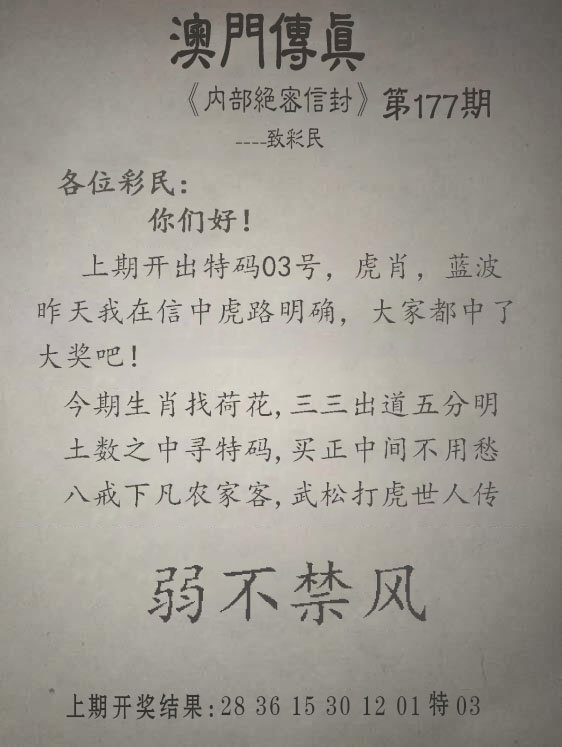 澳門傳眞
《内部絕密信封》第177期
----致彩民
各位彩民：
你们好！
上期开出特码03号，虎肖，蓝波
昨天我在信中虎路明确，大家都中了
大奖吧！
今期生肖找荷花,三三出道五分明
土数之中寻特码,买正中间不用愁
八戒下凡农家客,武松打虎世人传
弱不禁风
上期开奖结果:28 36 15 30 12 01特03